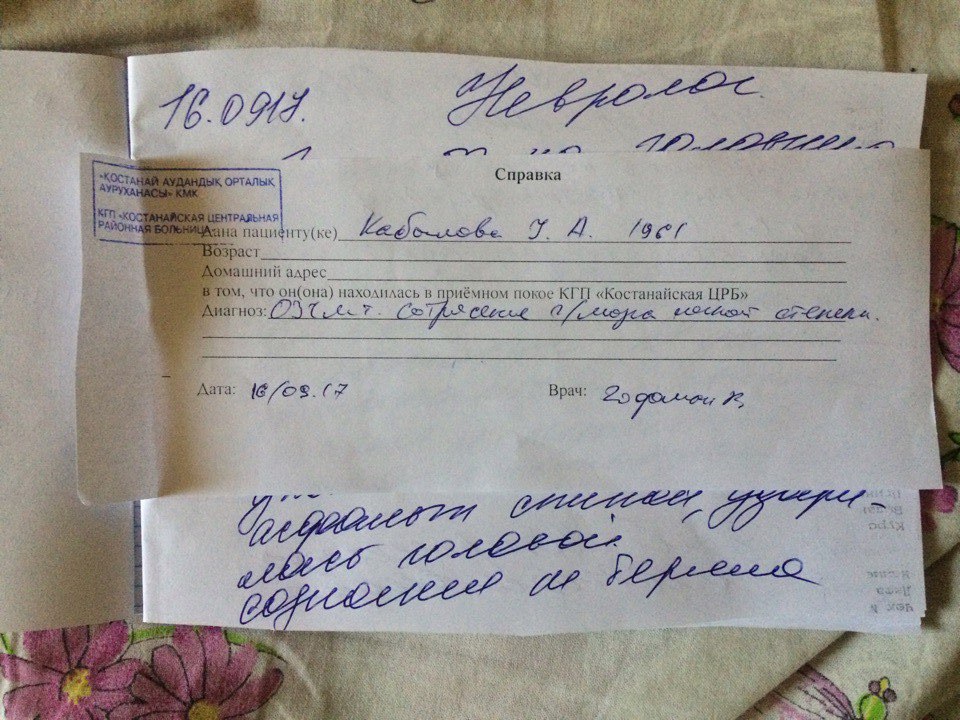 16.0917.
Невролог.
на головную
Справка
«ҚОСТАНАЙ АУДАНДЫҚ ОРТАЛЫҚ
АУРУХАНАСЫ» КМК
КГП «КОСТАНАЙСКАЯ ЦЕНТРАЛЬНАЯ
РАЙОННАЯ БОЛЬНИЦА»
Дана пациенту(ке) Кабылова У. А. 1961
Возраст
Домашний адрес
в том, что он(она) находилась в приёмном покое КГП «Костанайская ЦРБ»
Диагноз: ОЗЧМТ. Сотрясение г/мозга легкой степени.
Дата: 16/09.17
Врач:
спиной, удари-
лась головой
сознание не теряла